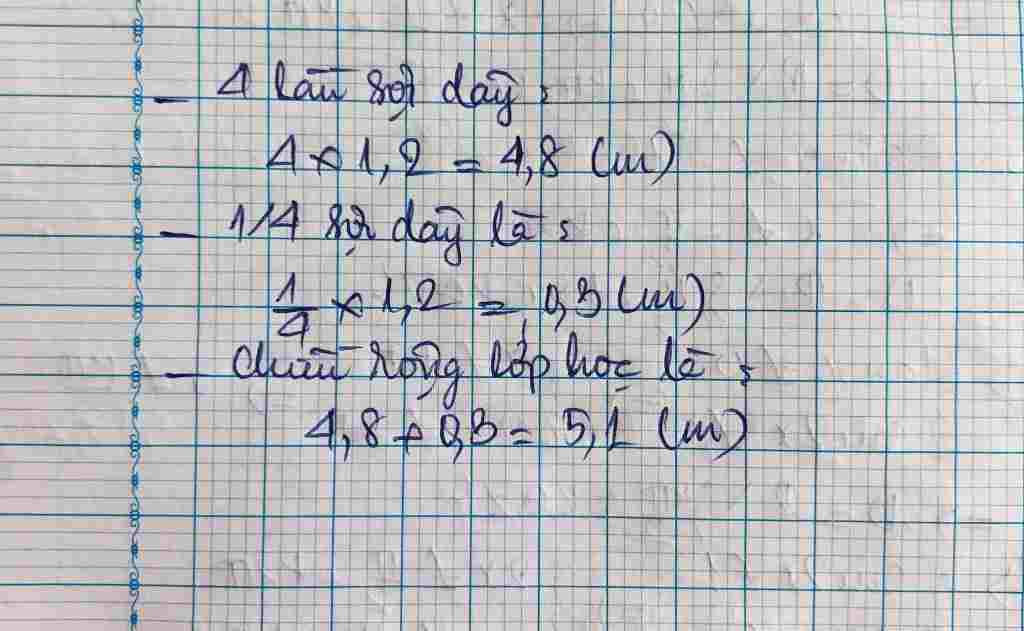 - 4 lần sợi dây:
4 × 1,2 = 4,8 (m)
- 1/4 sợi dây là:
1/4 × 1,2 = 0,3 (m)
- Chiều rộng lớp học là:
4,8 + 0,3 = 5,1 (m)